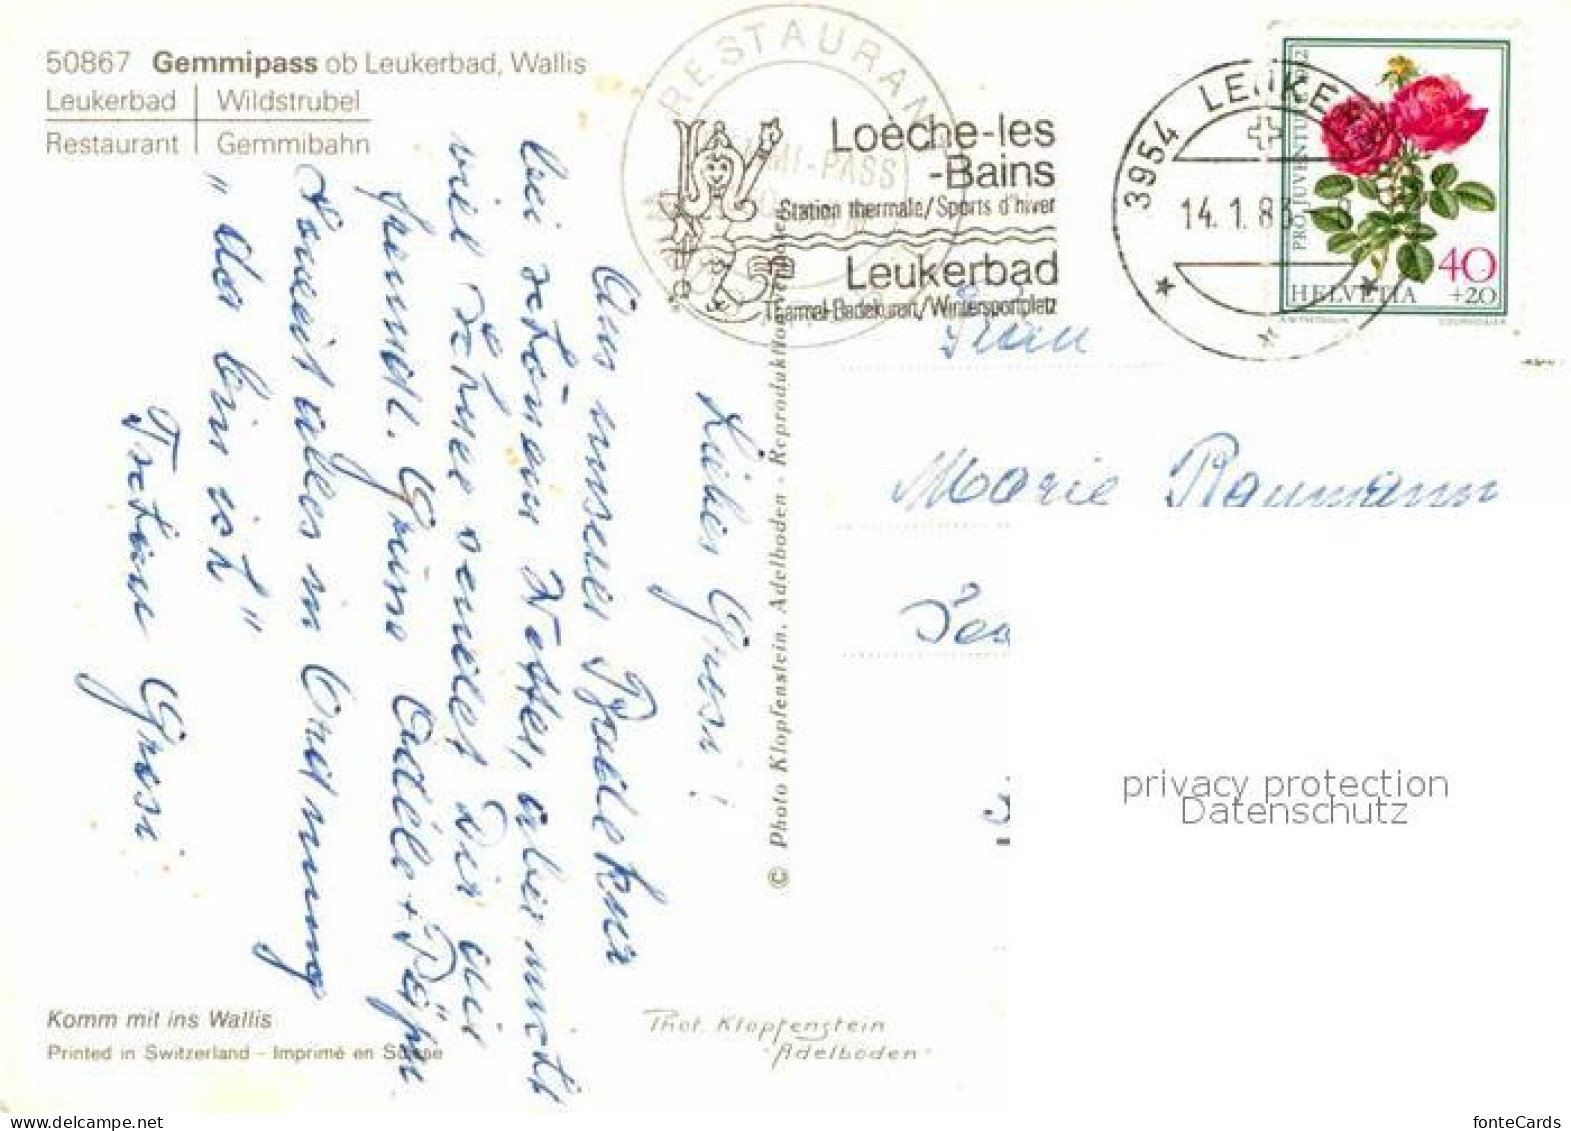 50867 Gemmipass ob Leukerbad, Wallis
Leukerbad | Wildstrubel
Restaurant | Gemmibahn
RESTAURAN
MI-PASS
Loèche-les
-Bains
Station thermale/Sports d'hiver
Leukerbad
Thermal-Badekurort/Wintersportplatz
3954 LEUKER
14.1.83-8
PRO JUVENTUTE
40
+20
HELVETIA
Liebes Grosi!
Aus unserer Badekur
bei schönem Wetter, aber nicht
viel Schnee sendet Dir
freundl. Grüsse Adèle +
Soweit alles in Ordnung
"
bin ist"
Grosi
Frau
Marie Baumann
© Photo Klopfenstein, Adelboden - Reproduktion verboten
Komm mit ins Wallis
Printed in Switzerland - Imprimé en Suisse
Phot. Klopfenstein
Adelboden
privacy protection
Datenschutz
www.delcampe.net
fonteCards